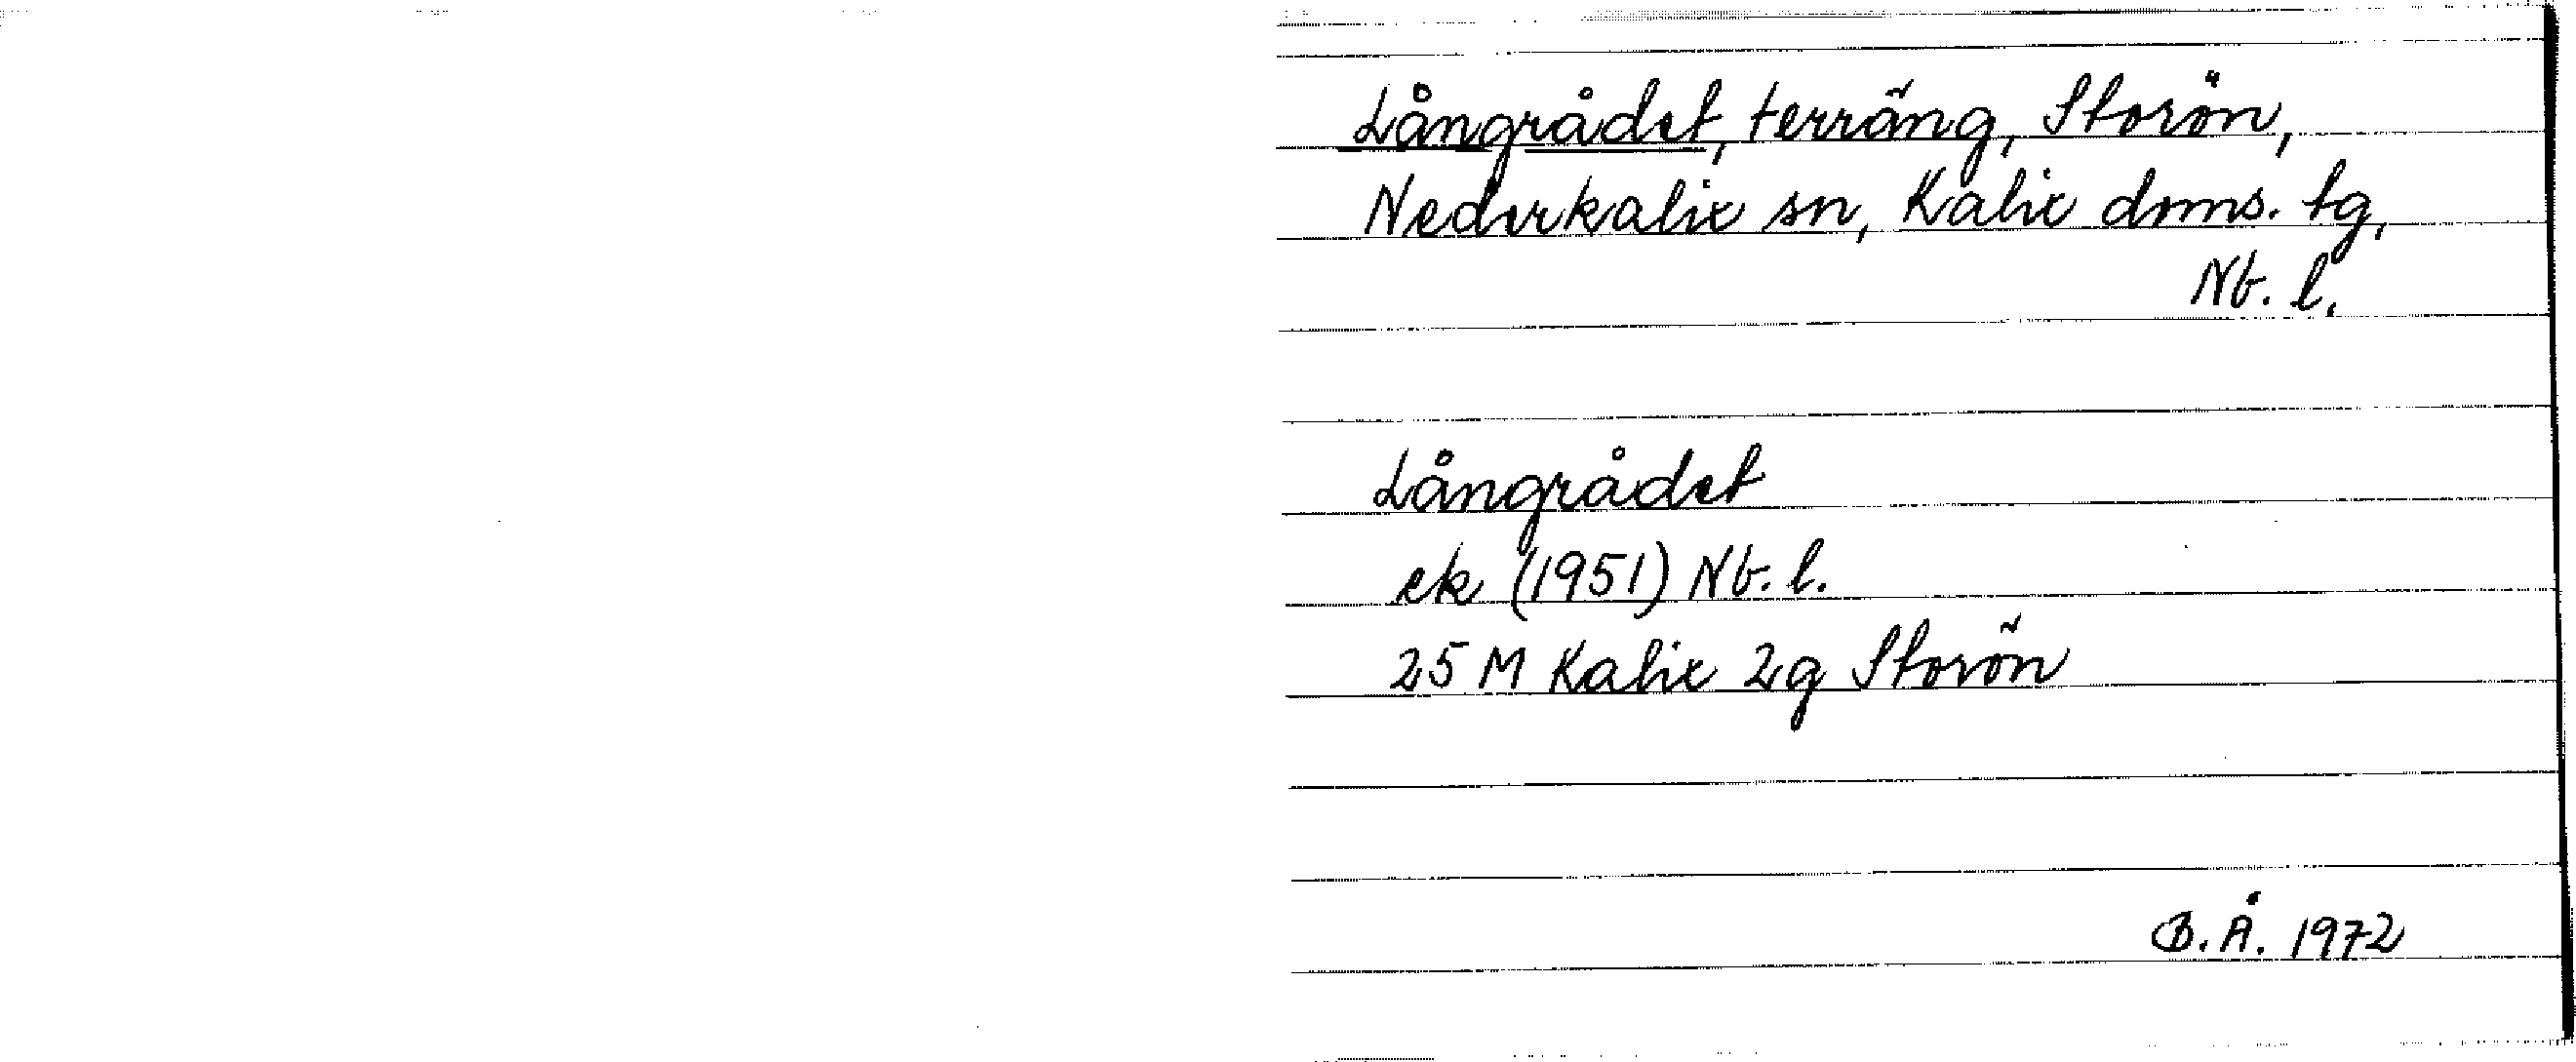 Långrådet, terräng, Storön,
Nederkalix sn, Kalix doms. tg,
Nb. l.
Långrådet
ek (1951) Nb. l.
25 M Kalix 2g Storön
B. Å. 1972